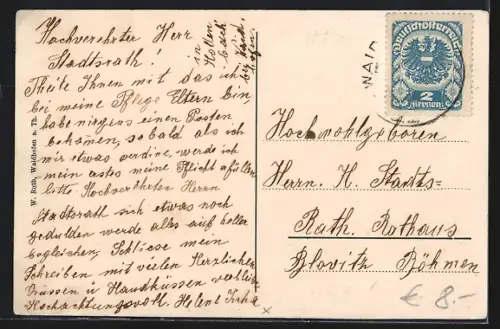 Hochverehrter Herr
Stadtsrath!
Theile Ihnen mit das ich
bei meine Pflege Eltern bin,
habe nirgens einen Posten
bekomen, sobald als ich
mir etwas verdine, werde ich
mein erstes meine Pflicht
bitte Hochverehrter Herrn
Stadtsrath sich etwas noch
gedulden werde alles auf
begleichen, Schliese mein
Schreiben mit vielen Herzlichen
Grüssen u Handküssen
Hochachtungsvoll. Helene
in
Hollen
bach
bei Waid
hofen.
W. Ruth, Waidhofen a. Th.
Deutschösterreich
2
Kronen
WAID
Hochwohlgeboren
Herrn. H. Stadts-
Rath. Rathaus
Blovitz Böhmen
€ 8.-
x